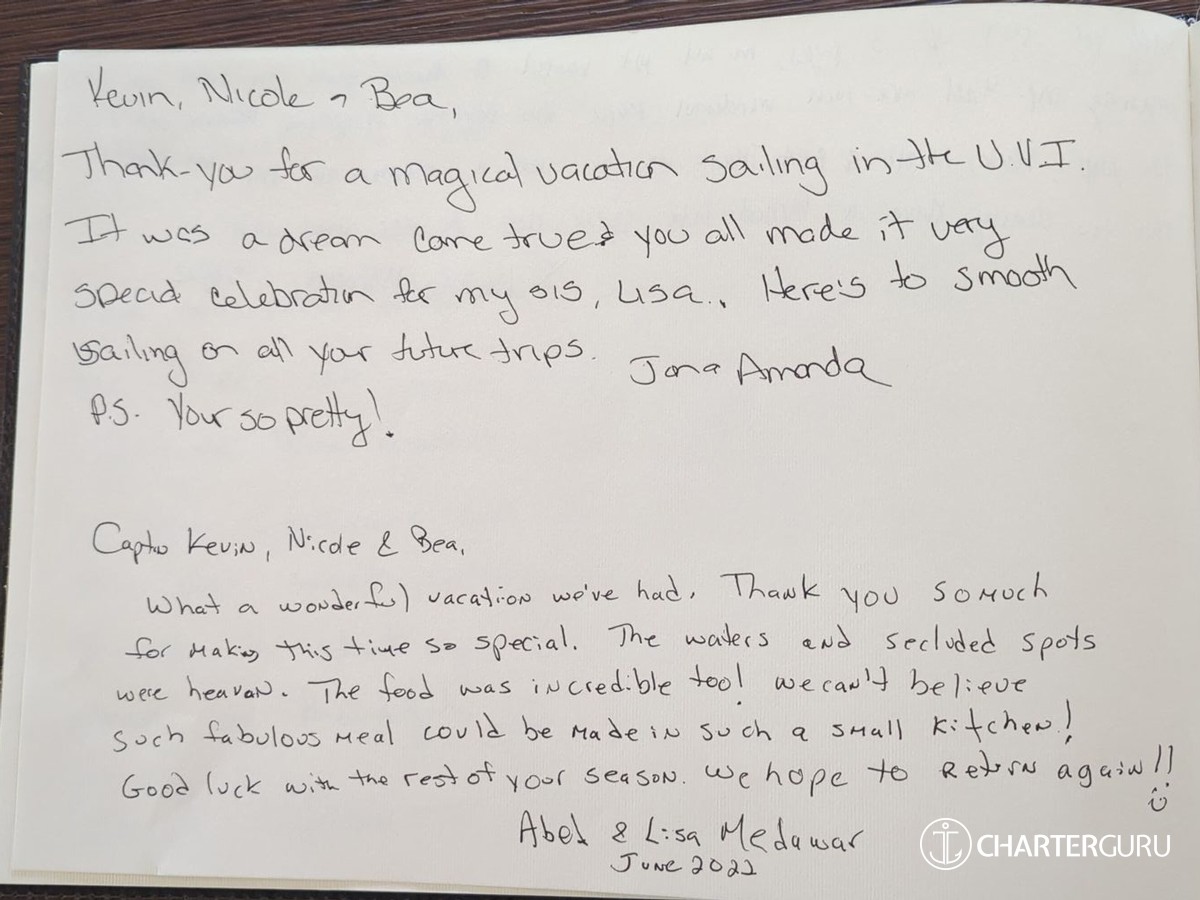 Kevin, Nicole & Bea,
Thank-you for a magical vacation sailing in the U.V.I.
It was a dream come true & you all made it very
special celebration for my sis, Lisa.. Here's to smooth
sailing on all your future trips. Jana Amanda
P.S. Your so pretty!
Capto Kevin, Nicole & Bea,
What a wonderful vacation we've had. Thank you so much
for making this time so special. The waters and secluded spots
were heavan. The food was incredible too! we can't believe
such fabulous meal could be made in such a small kitchen!
Good luck with the rest of your season. We hope to return again!!
Abel & Lisa Medawar
June 2022
CHARTERGURU